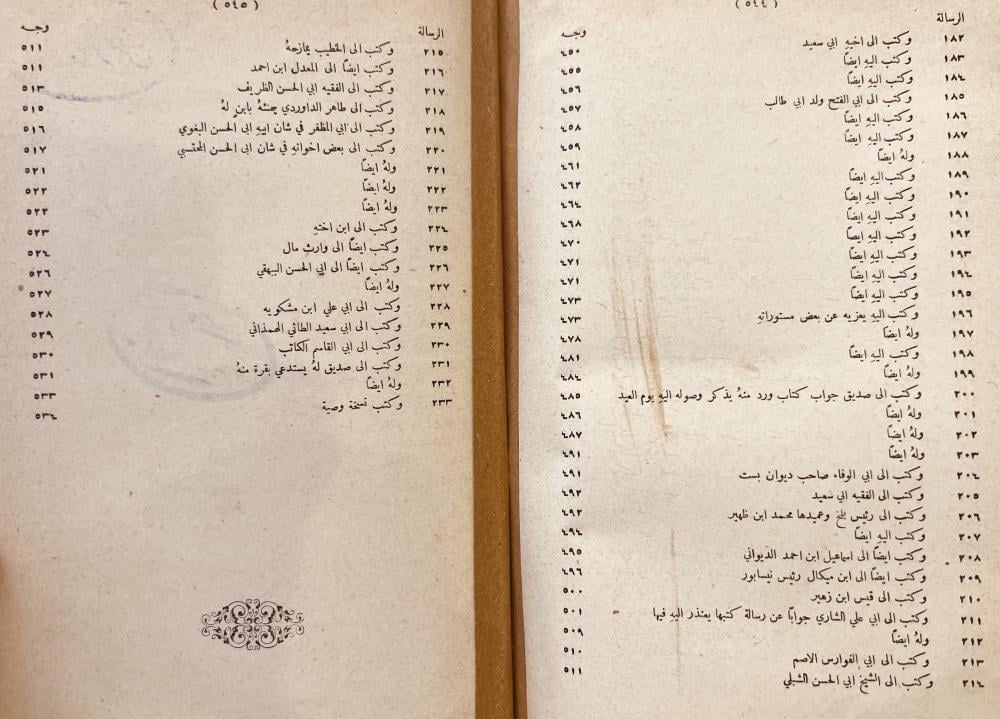 ( ٥٤٤ )
الرسالة وجه
١٨٢ وكتب الى اخيهِ ابي سعيد ٤٥٠
١٨٣ وكتب اليهِ ايضاً ٤٥٥
١٨٤ وكتب اليهِ ايضاً ٤٥٦
١٨٥ وكتب الى ابي الفتح ولد ابي طالب ٤٥٧
١٨٦ وكتب اليهِ ايضاً ٤٥٨
١٨٧ وكتب اليهِ ايضاً ٤٥٩
١٨٨ ولهُ ايضاً ٤٦١
١٨٩ وكتب اليهِ ايضاً ٤٦٢
١٩٠ وكتب اليهِ ايضاً ٤٦٤
١٩١ وكتب اليهِ ايضاً ٤٦٨
١٩٢ وكتب اليهِ ايضاً ٤٧٠
١٩٣ وكتب اليهِ ايضاً ٤٧١
١٩٤ وكتب اليهِ ايضاً ٤٧١
١٩٥ وكتب اليهِ ايضاً ٤٧٣
١٩٦ وكتب اليهِ يعزيه عن بعض مستوراتهِ ٤٧٣
١٩٧ ولهُ ايضاً ٤٧٨
١٩٨ وكتب اليهِ ايضاً ٤٨١
١٩٩ ولهُ ايضاً ٤٨٤
٢٠٠ وكتب الى صديق جواب كتاب ورد منهُ يذكر وصوله اليهِ يوم العيد ٤٨٥
٢٠١ ولهُ ايضاً ٤٨٦
٢٠٢ ولهُ ايضاً ٤٨٧
٢٠٣ ولهُ ايضاً ٤٩١
٢٠٤ وكتب الى ابي الوفاء صاحب ديوان بست ٤٩١
٢٠٥ وكتب الى الفقيه ابي سعيد ٤٩٢
٢٠٦ وكتب الى رئيس بلخ وعميدها محمد ابن ظهير ٤٩٣
٢٠٧ وكتب اليهِ ايضاً ٤٩٤
٢٠٨ وكتب ايضاً الى اسماعيل ابن احمد الديواني ٤٩٥
٢٠٩ وكتب ايضاً الى ابن ميكال رئيس نيسابور ٤٩٦
٢١٠ وكتب الى قيس ابن زهير ٥٠٠
٢١١ وكتب الى ابي علي الشاري جواباً عن رسالة كتبها يعتذر اليهِ فيها ٥٠١
٢١٢ ولهُ ايضاً ٥٠٩
٢١٣ وكتب الى ابي الفوارس الاصم ٥١٠
٢١٤ وكتب الى الشيخ ابي الحسن الشبلي ٥١١
( ٥٤٥ )
الرسالة وجه
٢١٥ وكتب الى الخطيب يمازحهُ ٥١١
٢١٦ وكتب ايضاً الى المعدل ابن احمد ٥١١
٢١٧ وكتب الى الفقيه ابي الحسن الظريف ٥١٣
٢١٨ وكتب الى طاهر الداوردي يهنئهُ بابنٍ لهُ ٥١٥
٢١٩ وكتب الى ابي المظفر في شان ابيهِ ابي الحسن البغوي ٥١٦
٢٢٠ وكتب الى بعض اخوانهِ في شان ابي الحسن المحتسبي ٥١٧
٢٢١ ولهُ ايضاً ٥٢١
٢٢٢ ولهُ ايضاً ٥٢٢
٢٢٣ ولهُ ايضاً ٥٢٢
٢٢٤ وكتب الى ابن اختهِ ٥٢٣
٢٢٥ وكتب ايضاً الى وارث مال ٥٢٤
٢٢٦ وكتب ايضاً الى ابي الحسن البيهقي ٥٢٦
٢٢٧ ولهُ ايضاً ٥٢٧
٢٢٨ وكتب الى ابي علي ابن مشكويه ٥٢٨
٢٢٩ وكتب الى ابي سعيد الطائي الهمذاني ٥٢٩
٢٣٠ وكتب الى ابي القاسم الكاتب ٥٣٠
٢٣١ وكتب الى صديق لهُ يستدعي بقرة منهُ ٥٣١
٢٣٢ ولهُ ايضاً ٥٣٣
٢٣٣ وكتب نسخة وصية ٥٣٤